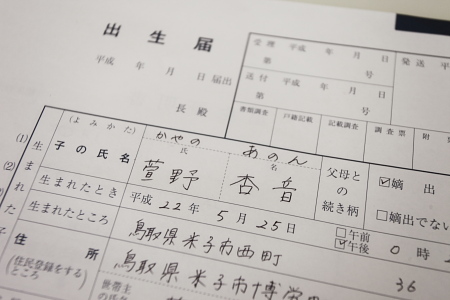 出生届
平成 年 月 日届出
長殿
受理 平成 年 月 日
第 号
送付 平成 年 月 日
第 号
発送 平
書類調査 戸籍記載 記載調査 調査票 附
(1)
(2)
生まれた子
(よみかた) かやの あのん
氏 名
子の氏名 萱野 杏音
父母との続き柄
☑嫡出
□嫡出でない
生まれたとき 平成 22年 5月 25日 □午前 ☑午後 0時
生まれたところ 鳥取県米子市西町 36
住所
(住民登録をするところ
鳥取県米子市博労
世帯主